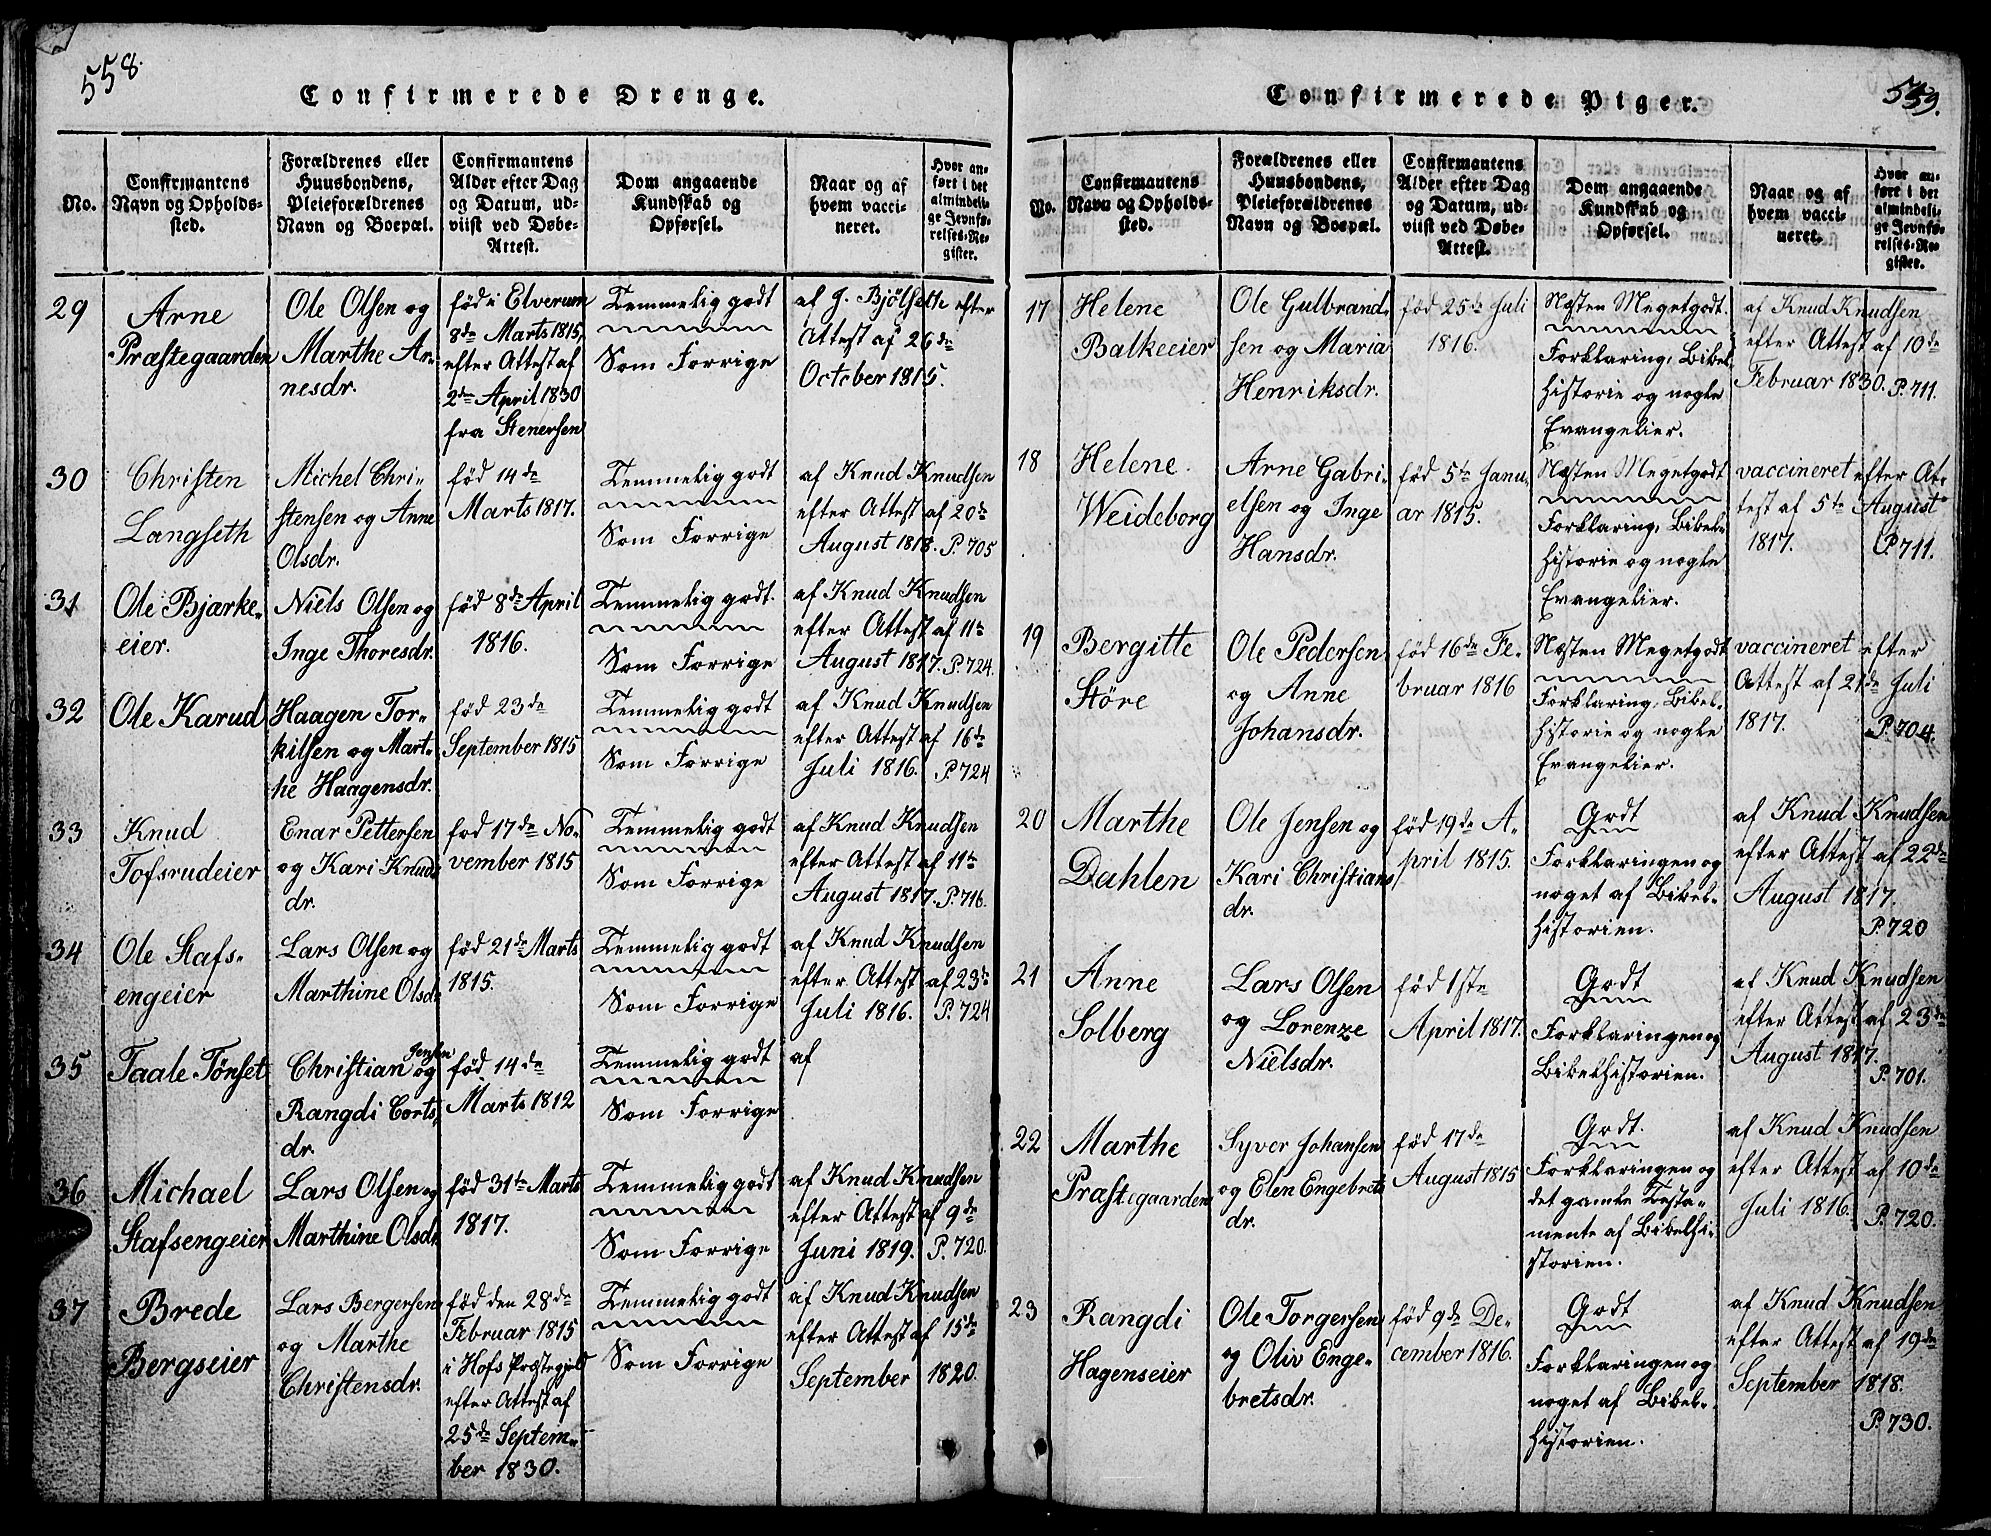 558.
Confirmerede Drenge.
No.
Confirmantens
Navn og Opholds-
sted.
Forældrenes eller
Huusbondens,
Pleieforældrenes
Navn og Boepæl.
Confirmantens
Alder efter Dag
og Datum, ud-
viist ved Døbe-
Attest.
Dom angaaende
Kundskab og
Opførsel.
Naar og af
hvem vacci-
neret.
Hvor an-
ført i det
almindeli-
ge Jevnfø-
relses-Re-
gister.
29
Arne
Præstegaarden
Ole Olsen og
Marthe Ar-
nesdr.
fød i Elverum
8de Marts 1815,
efter Attest af
2den April 1830
fra Stenersen
Temmelig godt
Som Forrige
af J. Bjölseth efter
Attest af 26de
October 1815.
30
Christen
Langseth
Michel Chri-
stensen og Anne
Olsdr.
fød 14de
Marts 1817.
Temmelig godt
Som Forrige
af Knud Knudsen
efter Attest af 20de
August 1818. P. 705
31
Ole Bjarke-
eier.
Niels Olsen og
Inge Thoresdr.
fød 8de April
1816.
Temmelig godt.
Som Forrige
af Knud Knudsen
efter Attest af 11te
August 1817. P. 724
32
Ole Karud
Haagen Tor-
kilsen og Mart-
he Haagensdr.
fød 23de
September 1815
Temmelig godt
Som Forrige
af Knud Knudsen
efter Attest af 16de
Juli 1816. P. 724
33
Knud
Tofsrudeier
Enar Pettersen
og Kari Knuds
dr.
fød 17de No-
vember 1815
Temmelig godt
Som Forrige
af Knud Knudsen
efter Attest af 11te
August 1817. P. 716.
34
Ole Stafs-
engeier
Lars Olsen og
Marthine Olsdr
fød 21de Marts
1815.
Temmelig godt
Som Forrige
af Knud Knudsen
efter Attest af 23de
Juli 1816. P. 724
35
Taale Tønset
Jensen
Christian og
Rangdi Corts
dr.
fød 14de
Marts 1812
Temmelig godt
Som Forrige
af
36
Michael
Stafsengeier
Lars Olsen og
Marthine Olsdr
fød 31te Marts
1817.
Temmelig godt
Som Forrige
af Knud Knudsen
efter Attest af 9de
Juni 1819. P. 720.
37
Brede
Bergseier
Lars Bergersen
og Marthe
Christensdr.
fød den 28de
Februar 1815
i Hofs Præstegjeld
efter Attest af
25de Septem-
ber 1830.
Temmelig godt
Som Forrige
af Knud Knudsen
efter Attest af 15de
September 1820.
559.
Confirmerede Piger.
No.
Confirmantens
Navn og Opholds-
sted.
Forældrenes eller
Huusbondens,
Pleieforældrenes
Navn og Boepæl.
Confirmantens
Alder efter Dag
og Datum, ud-
viist ved Døbe-
Attest.
Dom angaaende
Kundskab og
Opførsel.
Naar og af
hvem vacci-
neret.
Hvor an-
ført i det
almindeli-
ge Jevnfø-
relses-Re-
gister.
17
Helene
Balkeeier
Ole Gulbrand-
sen og Maria
Henriksdr.
fød 25de Juli
1816.
Næsten Megetgodt.
Forklaring, Bibel-
historie og nogle
Evangelier.
af Knud Knudsen
efter Attest af 10de
Februar 1830. P. 711.
18
Helene
Weideborg
Arne Gabri-
elsen og Inge
Hansdr.
fød 5te Janu-
ar 1815.
Næsten Megetgodt
Forklaring, Bibel-
historie og nogle
Evangelier.
vaccineret efter At-
test af 5te August
1817. P. 711.
19
Bergitte
Störe
Ole Pedersen
og Anne
Johansdr.
fød 16de Fe-
bruar 1816
Næsten Megetgodt
Forklaring, Bibel-
historie og nogle
Evangelier.
vaccineret efter
Attest af 21de Juli
1817. P. 704.
20
Marthe
Dahlen
Ole Jensen og
Kari Christians
dr.
fød 19de A-
pril 1815.
Godt
Forklaringen og
noget af Bibel-
historien.
af Knud Knudsen
efter Attest af 22de
August 1817.
P. 720
21
Anne
Solberg
Lars Olsen
og Lorenze
Nielsdr.
fød 1ste
April 1817.
Godt
Forklaringen og
Bibelhistorien.
af Knud Knudsen
efter Attest af 23de
August 1817.
P. 701.
22
Marthe
Præstegaarden
Syver Johansen
og Elen Engebrets
dr.
fød 17de
August 1815
Godt.
Forklaringen og
det gamle Testa-
mente af Bibelhi-
storien.
af Knud Knudsen
efter Attest af 10de
Juli 1816. P. 720.
23
Rangdi
Hagenseier
Ole Torgersen
og Oliv Enge-
bretsdr.
fød 9de De-
cember 1816.
Godt
Forklaringen og
noget af Bibel-
historien.
af Knud Knudsen
efter Attest af 19de
September 1818.
P. 730.